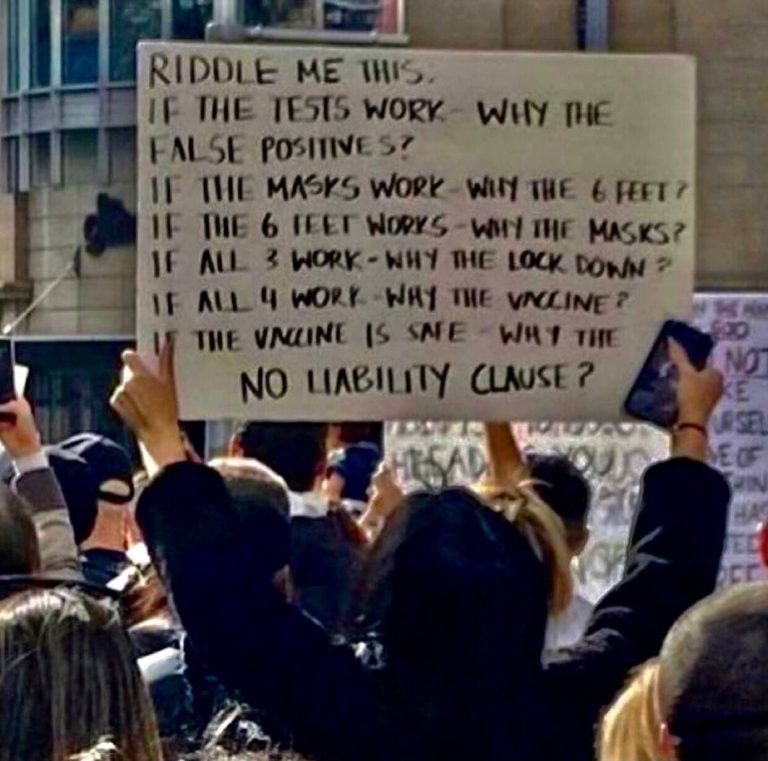 RIDDLE ME THIS.
IF THE TESTS WORK - WHY THE
FALSE POSITIVES?
IF THE MASKS WORK - WHY THE 6 FEET?
IF THE 6 FEET WORKS - WHY THE MASKS?
IF ALL 3 WORK - WHY THE LOCK DOWN?
IF ALL 4 WORK - WHY THE VACCINE?
IF THE VACCINE IS SAFE - WHY THE
NO LIABILITY CLAUSE?
NOT